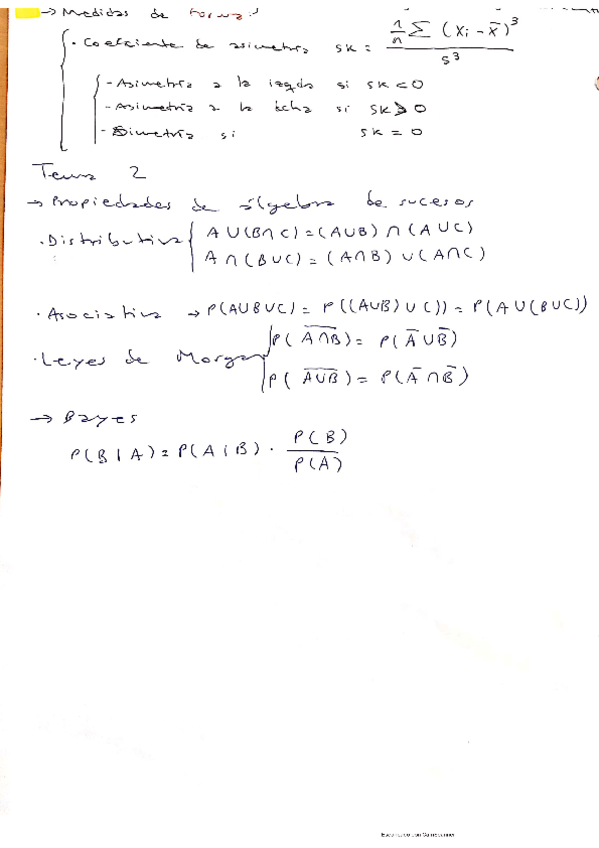 → Medidas de forma:
· Coeficiente de asimetría sk = \frac{\frac{1}{n} Σ (xi - x̄)^3}{s^3}
- Asimetría a la izqda si sk < 0
- Asimetría a la dcha si sk > 0
- Simetría si sk = 0
Tema 2
→ Propiedades de álgebra de sucesos
· Distributiva { A ∪ (B ∩ C) = (A ∪ B) ∩ (A ∪ C)
A ∩ (B ∪ C) = (A ∩ B) ∪ (A ∩ C)
· Asociativa → P(A ∪ B ∪ C) = P((A ∪ B) ∪ C)) = P(A ∪ (B ∪ C))
· Leyes de Morgan { P(\overline{A ∩ B}) = P(Ā ∪ B̄)
P(\overline{A ∪ B}) = P(Ā ∩ B̄)
→ Bayes
P(B | A) = P(A | B) · \frac{P(B)}{P(A)}
Escaneado con CamScanner